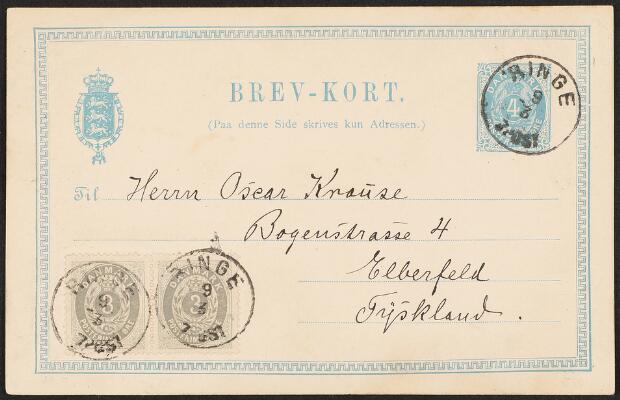 BREV-KORT.
(Paa denne Side skrives kun Adressen.)
4
RINGE
9
3
7POST
Til Herrn Oscar Krause
Bogenstrasse 4
Elberfeld
Tyskland.
DANMARK
3
RINGE
9
3
7POST
DANMARK
3
RINGE
9
3
7POST